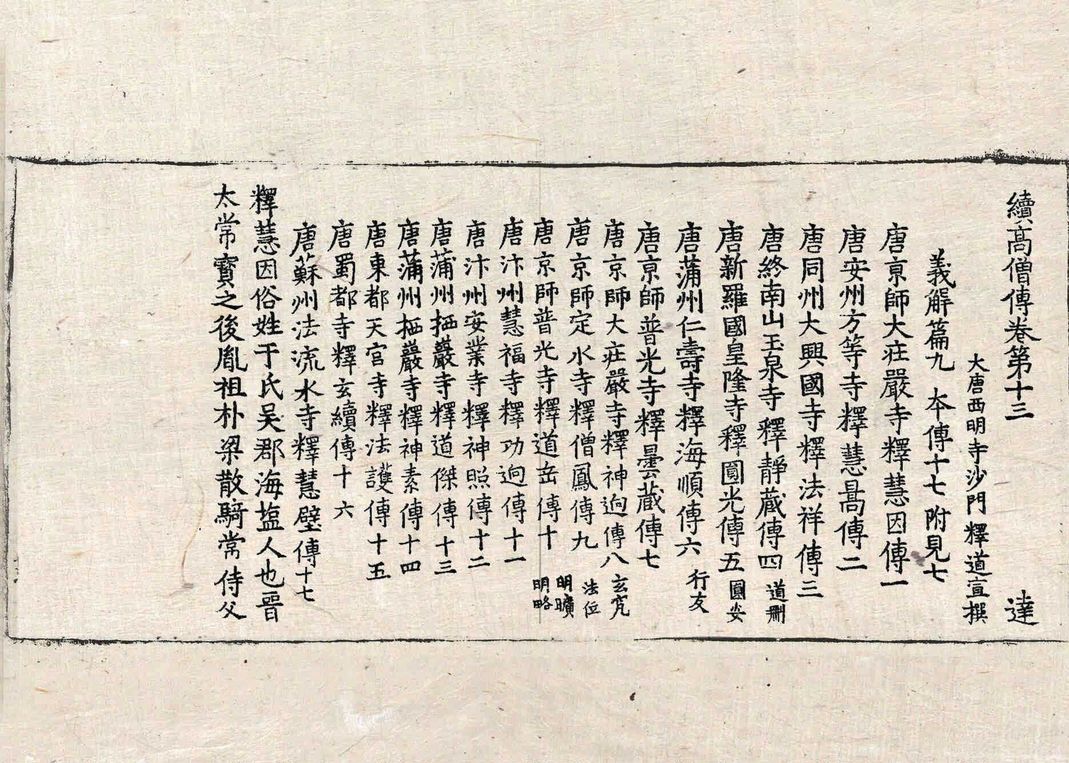 續高僧傳卷第十三 達
大唐西明寺沙門釋道宣撰
義解篇九 本傳十七 附見七
唐京師大莊嚴寺釋慧因傳一
唐安州方等寺釋慧暠傳二
唐同州大興國寺釋法祥傳三
唐終南山玉泉寺釋靜藏傳四 道刪
唐新羅國皇隆寺釋圓光傳五 圓安
唐蒲州仁壽寺釋海順傳六 行友
唐京師普光寺釋曇藏傳七
唐京師大莊嚴寺釋神逈傳八 玄究
唐京師定水寺釋僧鳳傳九 法位
唐京師普光寺釋道岳傳十 明曠 明略
唐汴州慧福寺釋功逈傳十一
唐汴州安業寺釋神照傳十二
唐蒲州栖巖寺釋道傑傳十三
唐蒲州栖巖寺釋神素傳十四
唐東都天宮寺釋法護傳十五
唐蜀都寺釋玄續傳十六
唐蘇州法流水寺釋慧璧傳十七
釋慧因俗姓于氏吳郡海塩人也晉
太常寶之後胤祖朴梁散騎常侍父